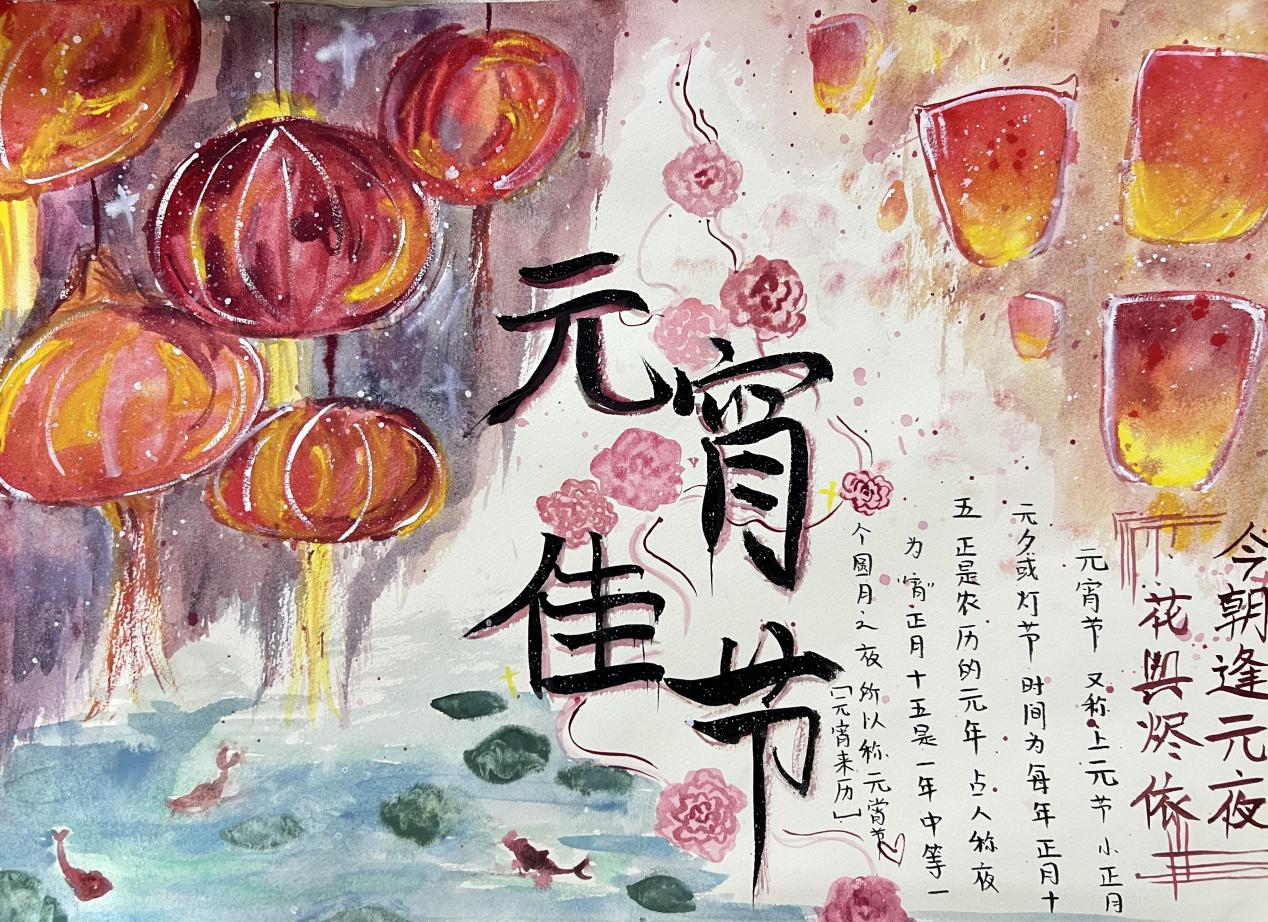 元宵
佳节
今朝逢元夜
花與烬依
元宵节 又称上元节 小正月
元夕或灯节 时间为每年正月十
五 正是农历的元年 占人称夜
为“宵”正月十五是一年中等一
个圆月之夜 所以称元宵节
「元宵来历」